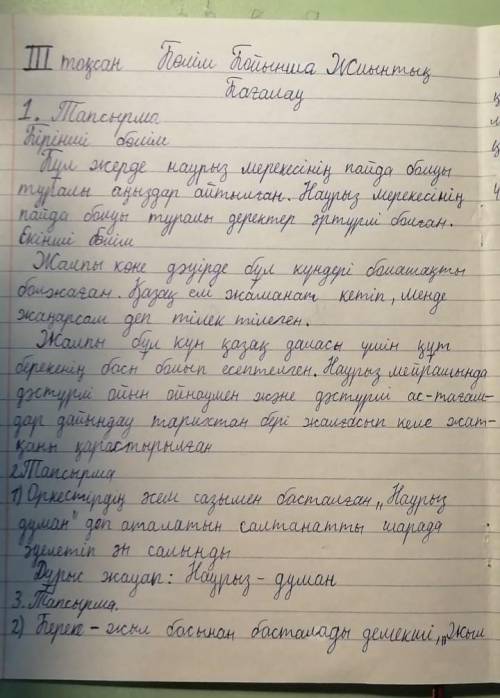 III тоқсан Бөлім Бойынша Жиынтық
Бағалау
1. Тапсырма
Бірінші бөлім
Бұл жерде наурыз мерекесінің пайда болуы
туралы аңыздар айтылған. Наурыз мерекесінің
пайда болуы туралы деректер әртүрлі болған.
Екінші бөлім
Жалпы көне дәуірде бұл күндері болашақты
болжаған. Қазақ елі жаманат кетіп, Менде
жаңарсам деп тілек тілеген.
Жалпы бұл күн қазақ даласы үшін құт
берекенің басы болып есептелген. Наурыз мейрамында
дәстүрлі ойын ойнаумен және дәстүрлі ас-тағам-
дар дайындау тарихтан бері жалғасып келе жат-
қаны қарастырылған
2. Тапсырма
1) Оркестірдің жем сазымен басталған „Наурыз
думан" деп аталатын салтанатты шарада
әуелетіп ән салынды
Дұрыс жауап: Наурыз - думан
3. Тапсырма.
2) Береке - жыл басынан басталады демекші, „Жыл